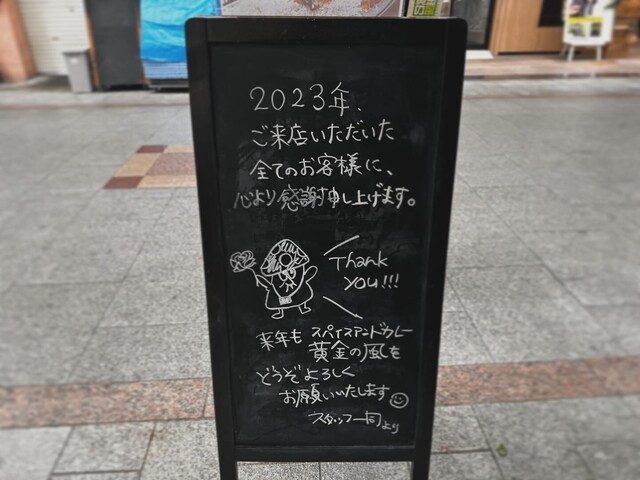 2023年、
ご来店いただいた
全てのお客様に、
心より感謝申し上げます。
Thank
you!!!
来年も スパイスアンドカレー
黄金の風を
どうぞよろしく
お願いいたします
スタッフ一同より